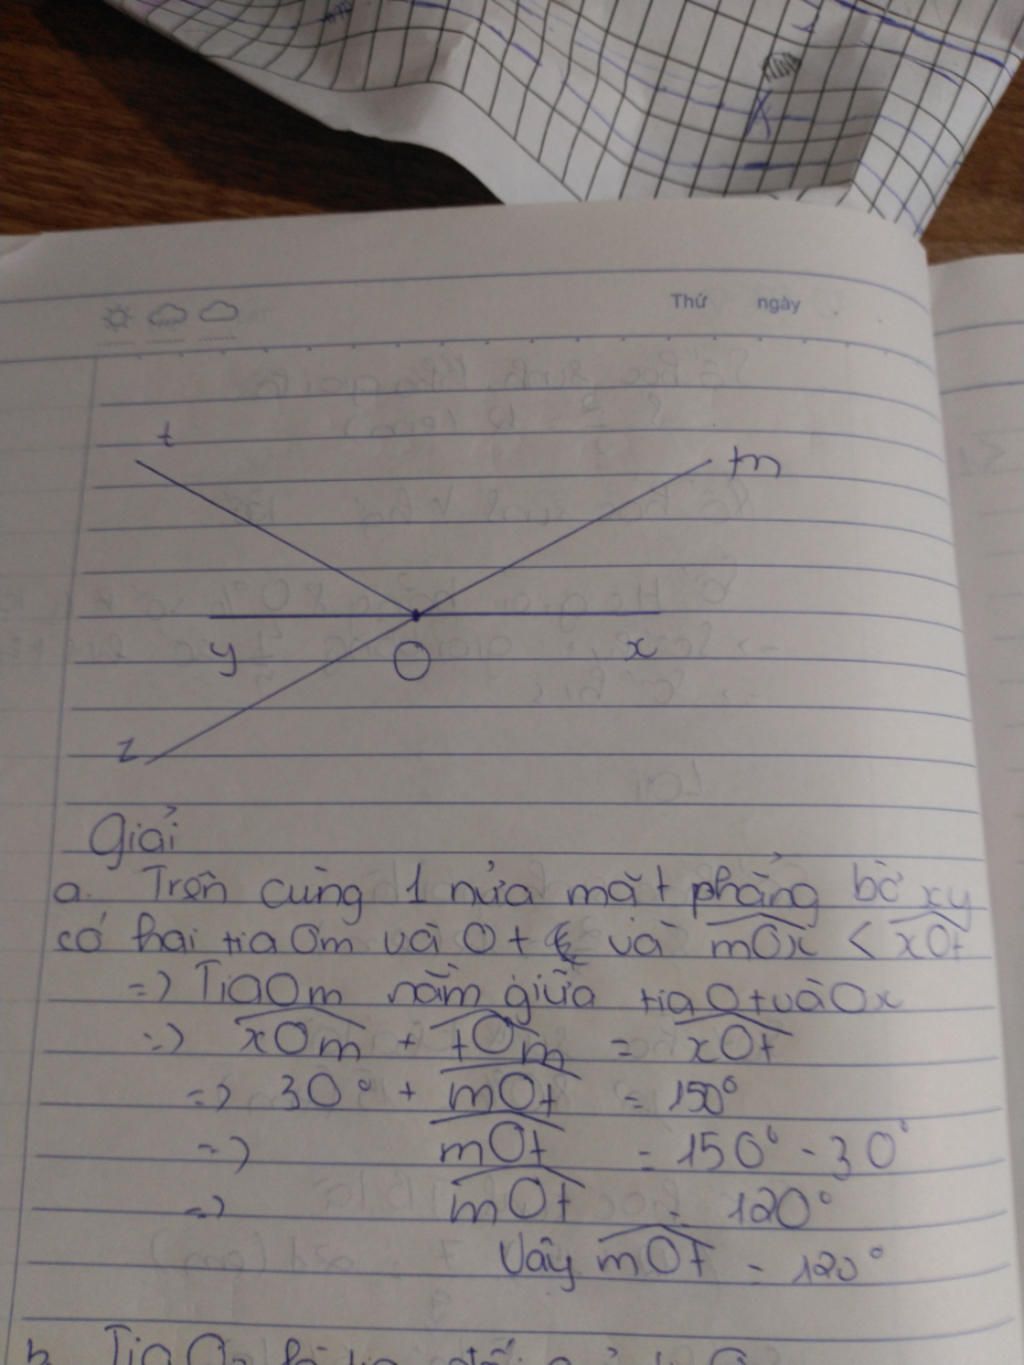 Thứ ngày
t
m
y
O
x
z
Giải
a. Trên cùng 1 nửa mặt phẳng bờ xy
có hai tia Om và Ot và mOx < xOt
=> Tia Om nằm giữa tia Ot và Ox
=> xOm + tOm = xOt
=> 30° + mOt = 150°
=> mOt = 150° - 30°
=> mOt = 120°
Vậy mOt = 120°
b. Tia Oz là tia đối của